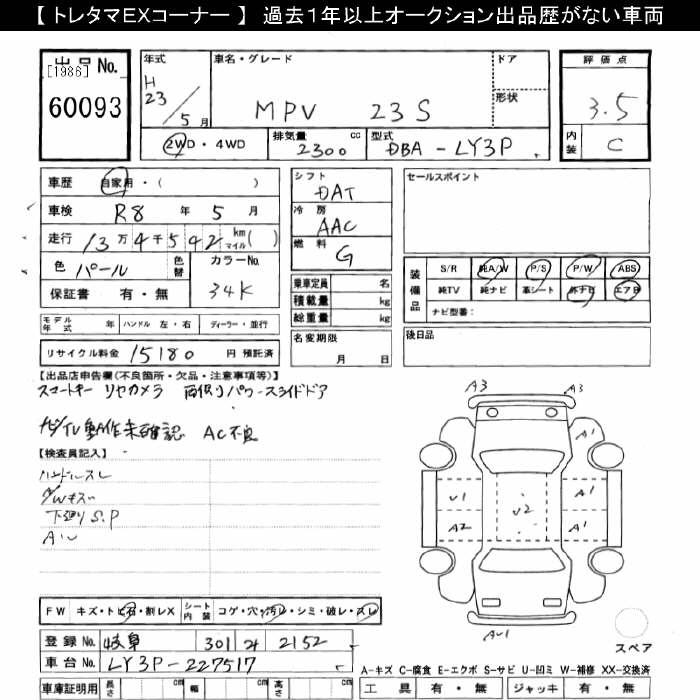 【 トレタマEXコーナー 】 過去1年以上オークション出品歴がない車両
出品No.
[1986]
60093
年式
H
23/5月
車名・グレード
MPV 23S
ドア
形状
2WD・4WD
排気量
2300 cc
型式
DBA-LY3P
評価点
3.5
内装
C
車歴 自家用・( )
車検 R8 年 5 月
走行 13万4千592 km マイル( )
色 パール 色替
カラーNo.
34K
保証書 有・無
シフト
DAT
冷房
AAC
燃料
G
乗車定員 名
積載量 kg
総重量 kg
名変期限
月 日
セールスポイント
装備品
S/R 純A/W P/S P/W ABS
純TV 純ナビ 革シート 外ナビ エアB
ナビ型番:
後日品
モデル年式 年 ハンドル 左・右 ディーラー・並行
リサイクル料金 15180 円 預託済
【出品店申告欄(不良箇所・欠品・注意事項等)】
スマートキー リヤカメラ 両側リパワースライドドア
ナビ/TV 動作未確認 AC不良
【検査員記入】
ハンドルスレ
A/Wキズ
下廻りS.P
A3
A3
A1
U1
A2
U2
A1
A1
スペア
FW キズ・トビ石・割レX
シート内装 コゲ・穴・汚レ・シミ・破レ・スレ
登録No. 岐阜 301 2152
車台No. LY3P-227517
車庫証明用 長さ cm 幅 cm 高さ cm
A-キズ C-腐食 E-エクボ S-サビ U-凹ミ W-補修 XX-交換済
工具 有・無 ジャッキ 有・無